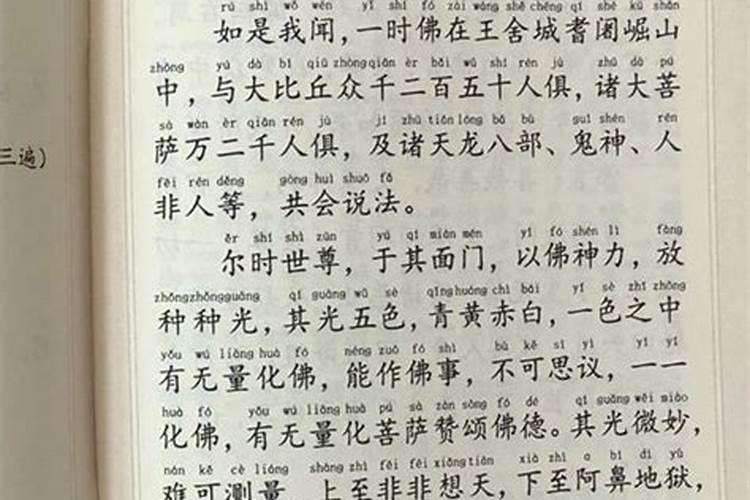 三遍)
rú shì wǒ wén yī shí fó zài wáng shě chéng qí shé kū shān
如是我闻,一时佛在王舍城耆阇崛山
zhōng yú dà bǐ qiū zhòng qiān èr bǎi wǔ shí rén jù zhū dà pú
中,与大比丘众千二百五十人俱,诸大菩
sà wàn èr qiān rén jù jí zhū tiān lóng bā bù guǐ shén rén
萨万二千人俱,及诸天龙八部、鬼神、人
fēi rén děng gòng huì shuō fǎ
非人等,共会说法。
ěr shí shì zūn yú qí miàn mén yǐ fó shén lì fàng
尔时世尊,于其面门,以佛神力,放
zhǒng zhǒng guāng qí guāng wǔ sè qīng huáng chì bái yī sè zhī zhōng
种种光,其光五色,青黄赤白,一色之中
yǒu wú liàng huà fó néng zuò fó shì bù kě sī yì yī yī
有无量化佛,能作佛事,不可思议,一一
huà fó yǒu wú liàng huà pú sà zàn sòng fó dé qí guāng wēi miào
化佛,有无量化菩萨赞颂佛德。其光微妙,
nán kě cè liáng shàng zhì fēi fēi xiǎng tiān xià zhì ā bí dì yù
难可测量,上至非非想天,下至阿鼻地狱,